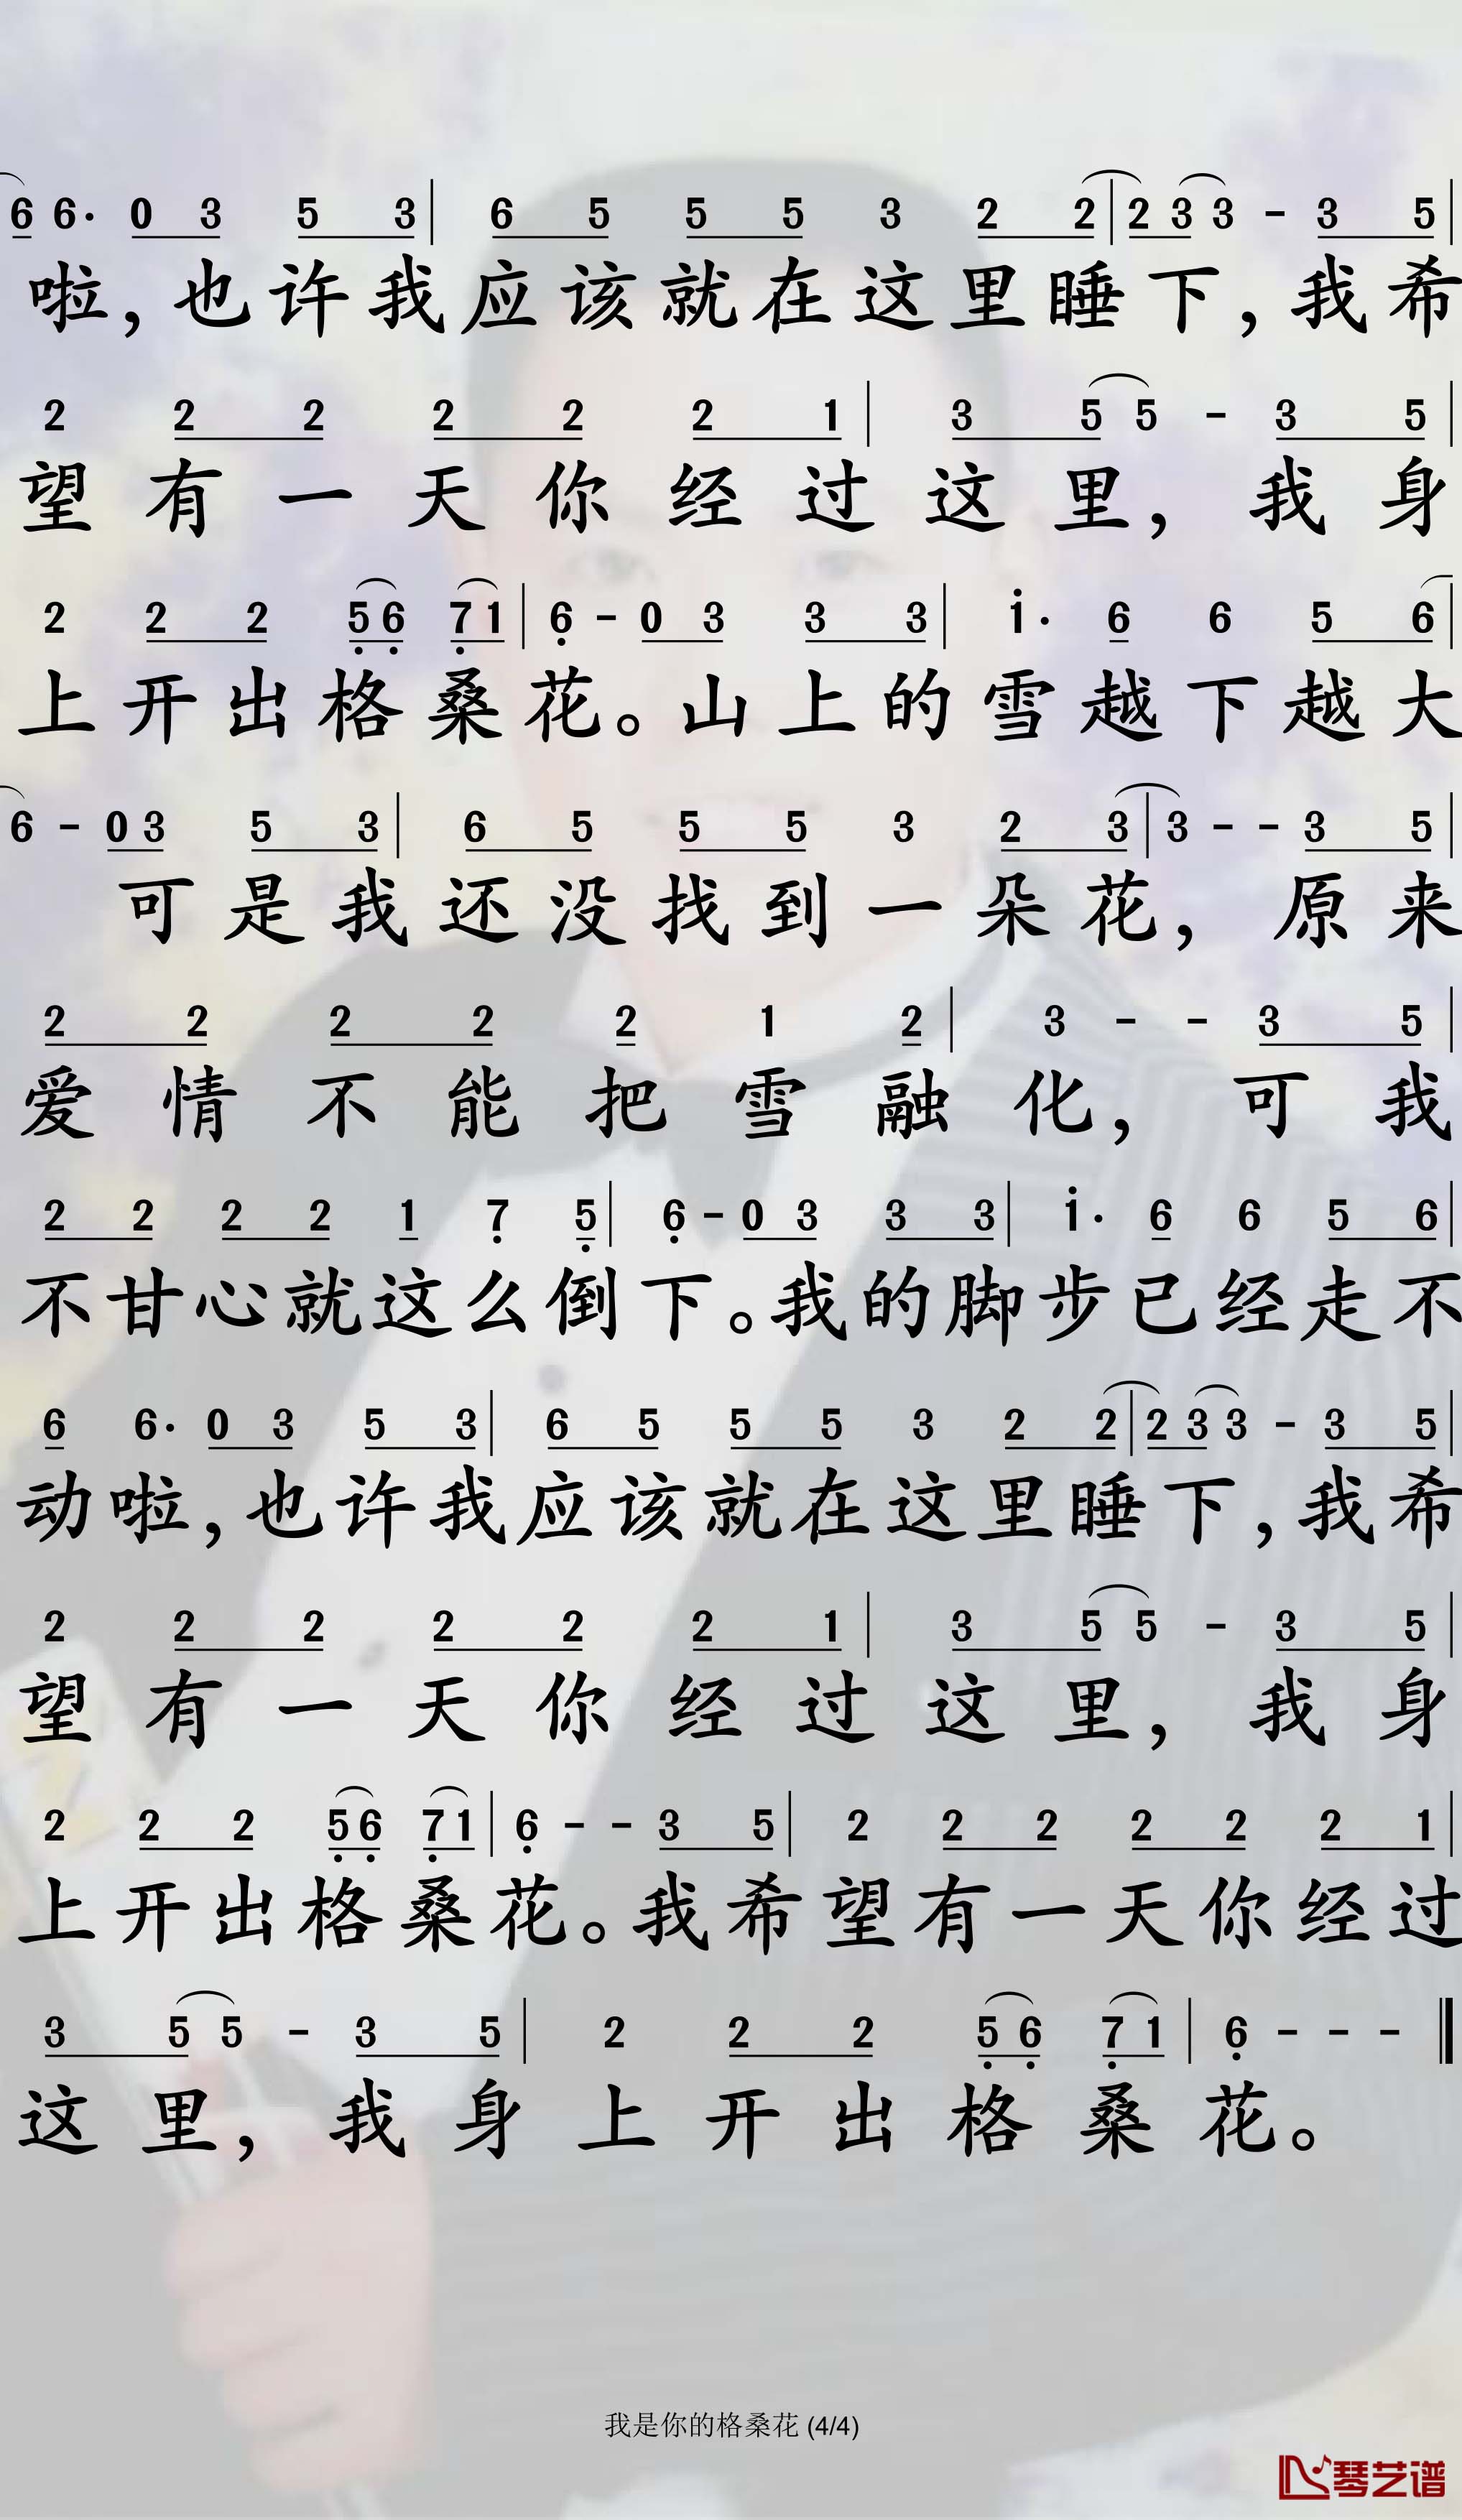 6 6· 0 3 5 3 | 6 5 5 5 3 2 2 | 2 3 3 - 3 5 |
啦，也许我应该就在这里睡下，我希
2 2 2 2 2 2 1 | 3 5 5 - 3 5 |
望有一天你经过这里，我身
2 2 2 5̣ 6̣ 7̣ 1 | 6̣ - 0 3 3 3 | i· 6 6 5 6 |
上开出格桑花。山上的雪越下越大
6 - 0 3 5 3 | 6 5 5 5 3 2 3 | 3 - - 3 5 |
可是我还没找到一朵花，原来
2 2 2 2 2 1 2 | 3 - - 3 5 |
爱情不能把雪融化，可我
2 2 2 2 1 7̣ 5̣ | 6̣ - 0 3 3 3 | i· 6 6 5 6 |
不甘心就这么倒下。我的脚步已经走不
6 6· 0 3 5 3 | 6 5 5 5 3 2 2 | 2 3 3 - 3 5 |
动啦，也许我应该就在这里睡下，我希
2 2 2 2 2 2 1 | 3 5 5 - 3 5 |
望有一天你经过这里，我身
2 2 2 5̣ 6̣ 7̣ 1 | 6̣ - - 3 5 | 2 2 2 2 2 2 1 |
上开出格桑花。我希望有一天你经过
3 5 5 - 3 5 | 2 2 2 5̣ 6̣ 7̣ 1 | 6̣ - - - ‖
这里，我身上开出格桑花。
我是你的格桑花 (4/4)
琴艺谱